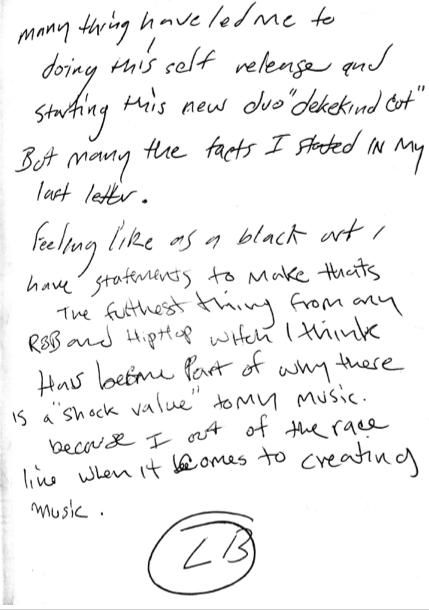 many thing have led me to
doing this self release and
starting this new duo "dekekind cut"
But many the facts I stated IN My
last letter.
feeling like as a black art I
have statements to make thats
The futhest thing from any
R&B and HipHop witch I think
Has become Part of why there
is a "shock value" to My music.
because I out of the race
line when it comes to creating
music.
LB